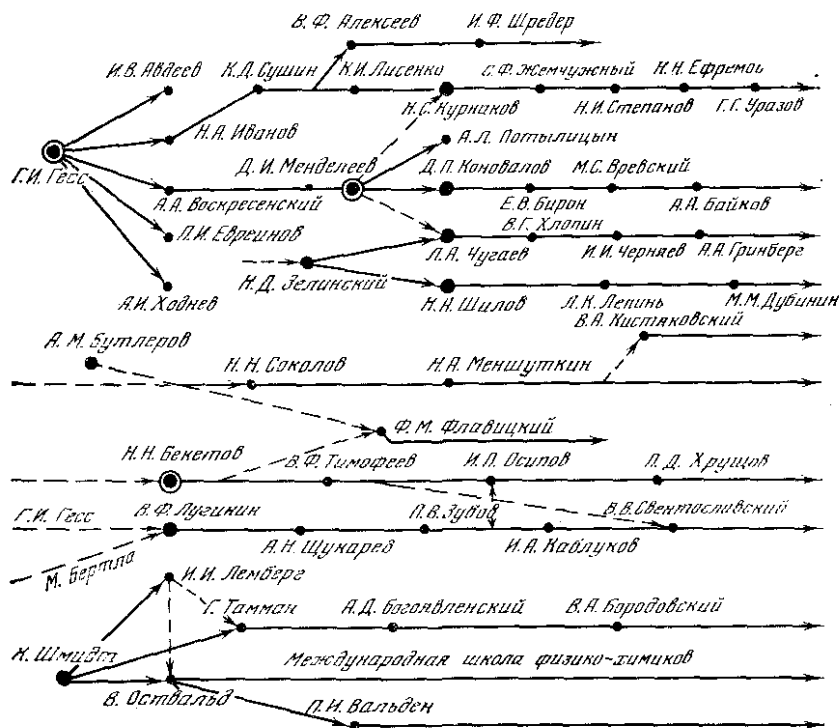 В. Ф. Алексеев И. Ф. Шредер
И. В. Авдеев К. Д. Сушин К. И. Лисенко С. Ф. Жемчужный Н. Н. Ефремов
Н. С. Курнаков Н. И. Степанов Г. Г. Уразов
Н. А. Иванов А. Л. Потылицын
Г. И. Гесс Д. И. Менделеев Д. П. Коновалов М. С. Вревский
А. А. Воскресенский Е. В. Бирон А. А. Байков
П. И. Евреинов В. Г. Хлопин
Л. А. Чугаев И. И. Черняев А. А. Гринберг
Н. Д. Зелинский
А. И. Ходнев Н. А. Шилов Л. К. Лепинь М. М. Дубинин
В. А. Кистяковский
А. М. Бутлеров
Н. Н. Соколов Н. А. Меншуткин
Ф. М. Флавицкий
Н. Н. Бекетов В. Ф. Тимофеев И. П. Осипов П. Д. Хрущов
Г. И. Гесс В. Ф. Лугинин П. В. Зубов В. В. Свентославский
А. Н. Щукарев И. А. Каблуков
М. Бертло
И. И. Лемберг
Г. Тамман А. Д. Богоявленский В. А. Бородовский
К. Шмидт
Международная школа физико-химиков
В. Оствальд
П. И. Вальден